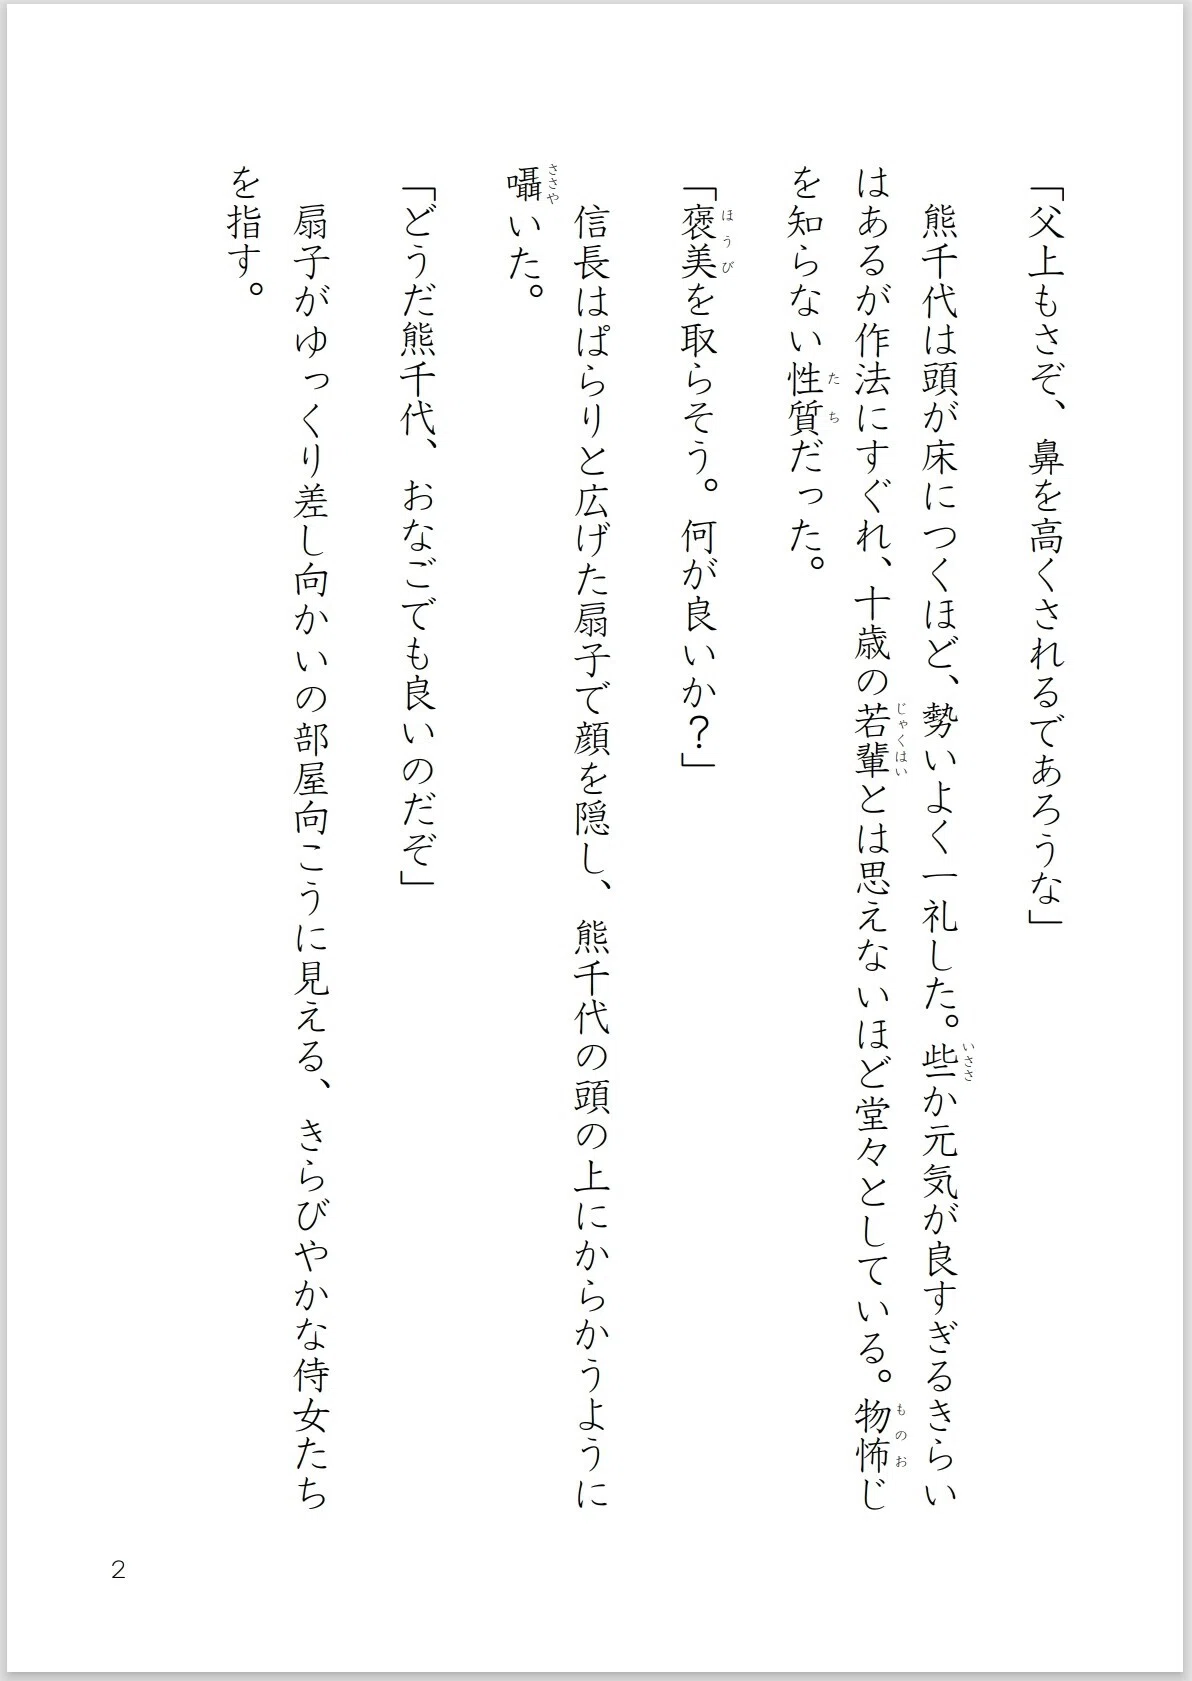 「父上もさぞ、鼻を高くされるであろうな」
熊千代は頭が床につくほど、勢いよく一礼した。些か元気が良すぎるきらい
はあるが作法にすぐれ、十歳の若輩とは思えないほど堂々としている。物怖じ
を知らない性質だった。
「褒美を取らそう。何が良いか？」
信長はぱらりと広げた扇子で顔を隠し、熊千代の頭の上にからかうように
囁いた。
「どうだ熊千代、おなごでも良いのだぞ」
扇子がゆっくり差し向かいの部屋向こうに見える、きらびやかな侍女たち
を指す。
いささ
じゃくはい
ものお
たち
ほうび
ささや
2